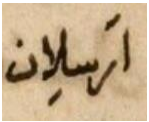 ارسلان